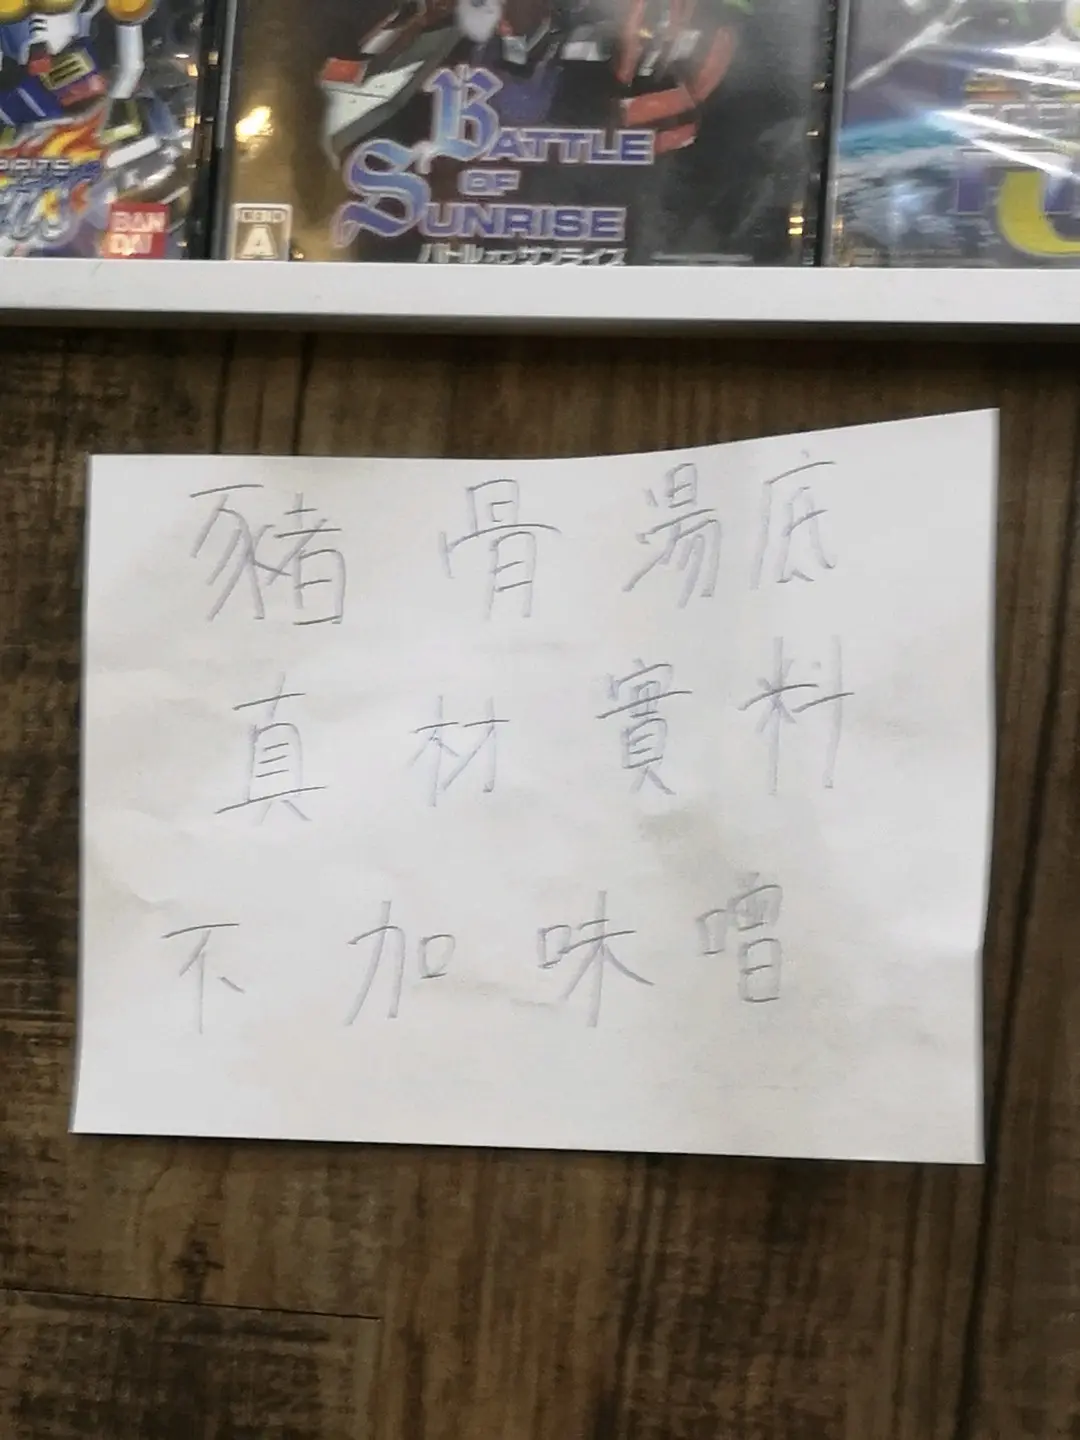 BAN
DAI
A
BATTLE
OF
SUNRISE
バトル オブ サンライズ
豬骨湯底
真材實料
不加味噌